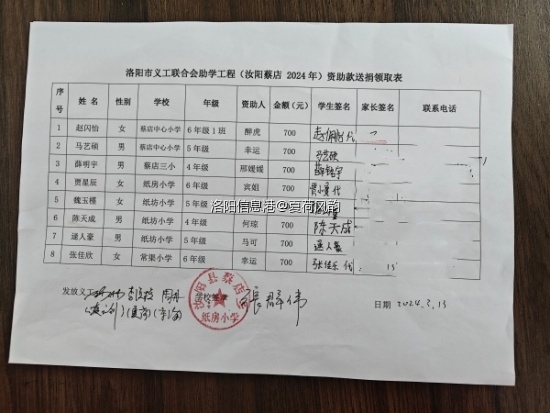 洛阳市义工联合会助学工程（汝阳蔡店 2024 年）资助款送捐领取表
序号 姓 名 性别 学校 年级 资助人 金额（元） 学生签名 家长签名 联系电话
1 赵闪怡 女 蔡店中心小学 6 年级 1 班 醉虎 700
2 马艺硕 男 蔡店中心小学 5 年级 幸运 700 马艺硕
3 薛明宇 男 蔡店三小 4 年级 邢媛媛 700 薛明宇
4 贾星辰 女 纸房小学 6 年级 宾姐 700
5 魏玉槿 女 纸坊小学 5 年级 700
6 陈天成 男 纸坊小学 4 年级 何琼 700 陈天成
7 逯人豪 男 纸坊小学 5 年级 马可 700 逯人豪
8 张佳欣 女 常渠小学 6 年级 幸运 700 张佳欣 代
洛阳信息港@夏荷风韵
发放义工
汝阳县蔡店
纸房小学
日期 2024.3.13